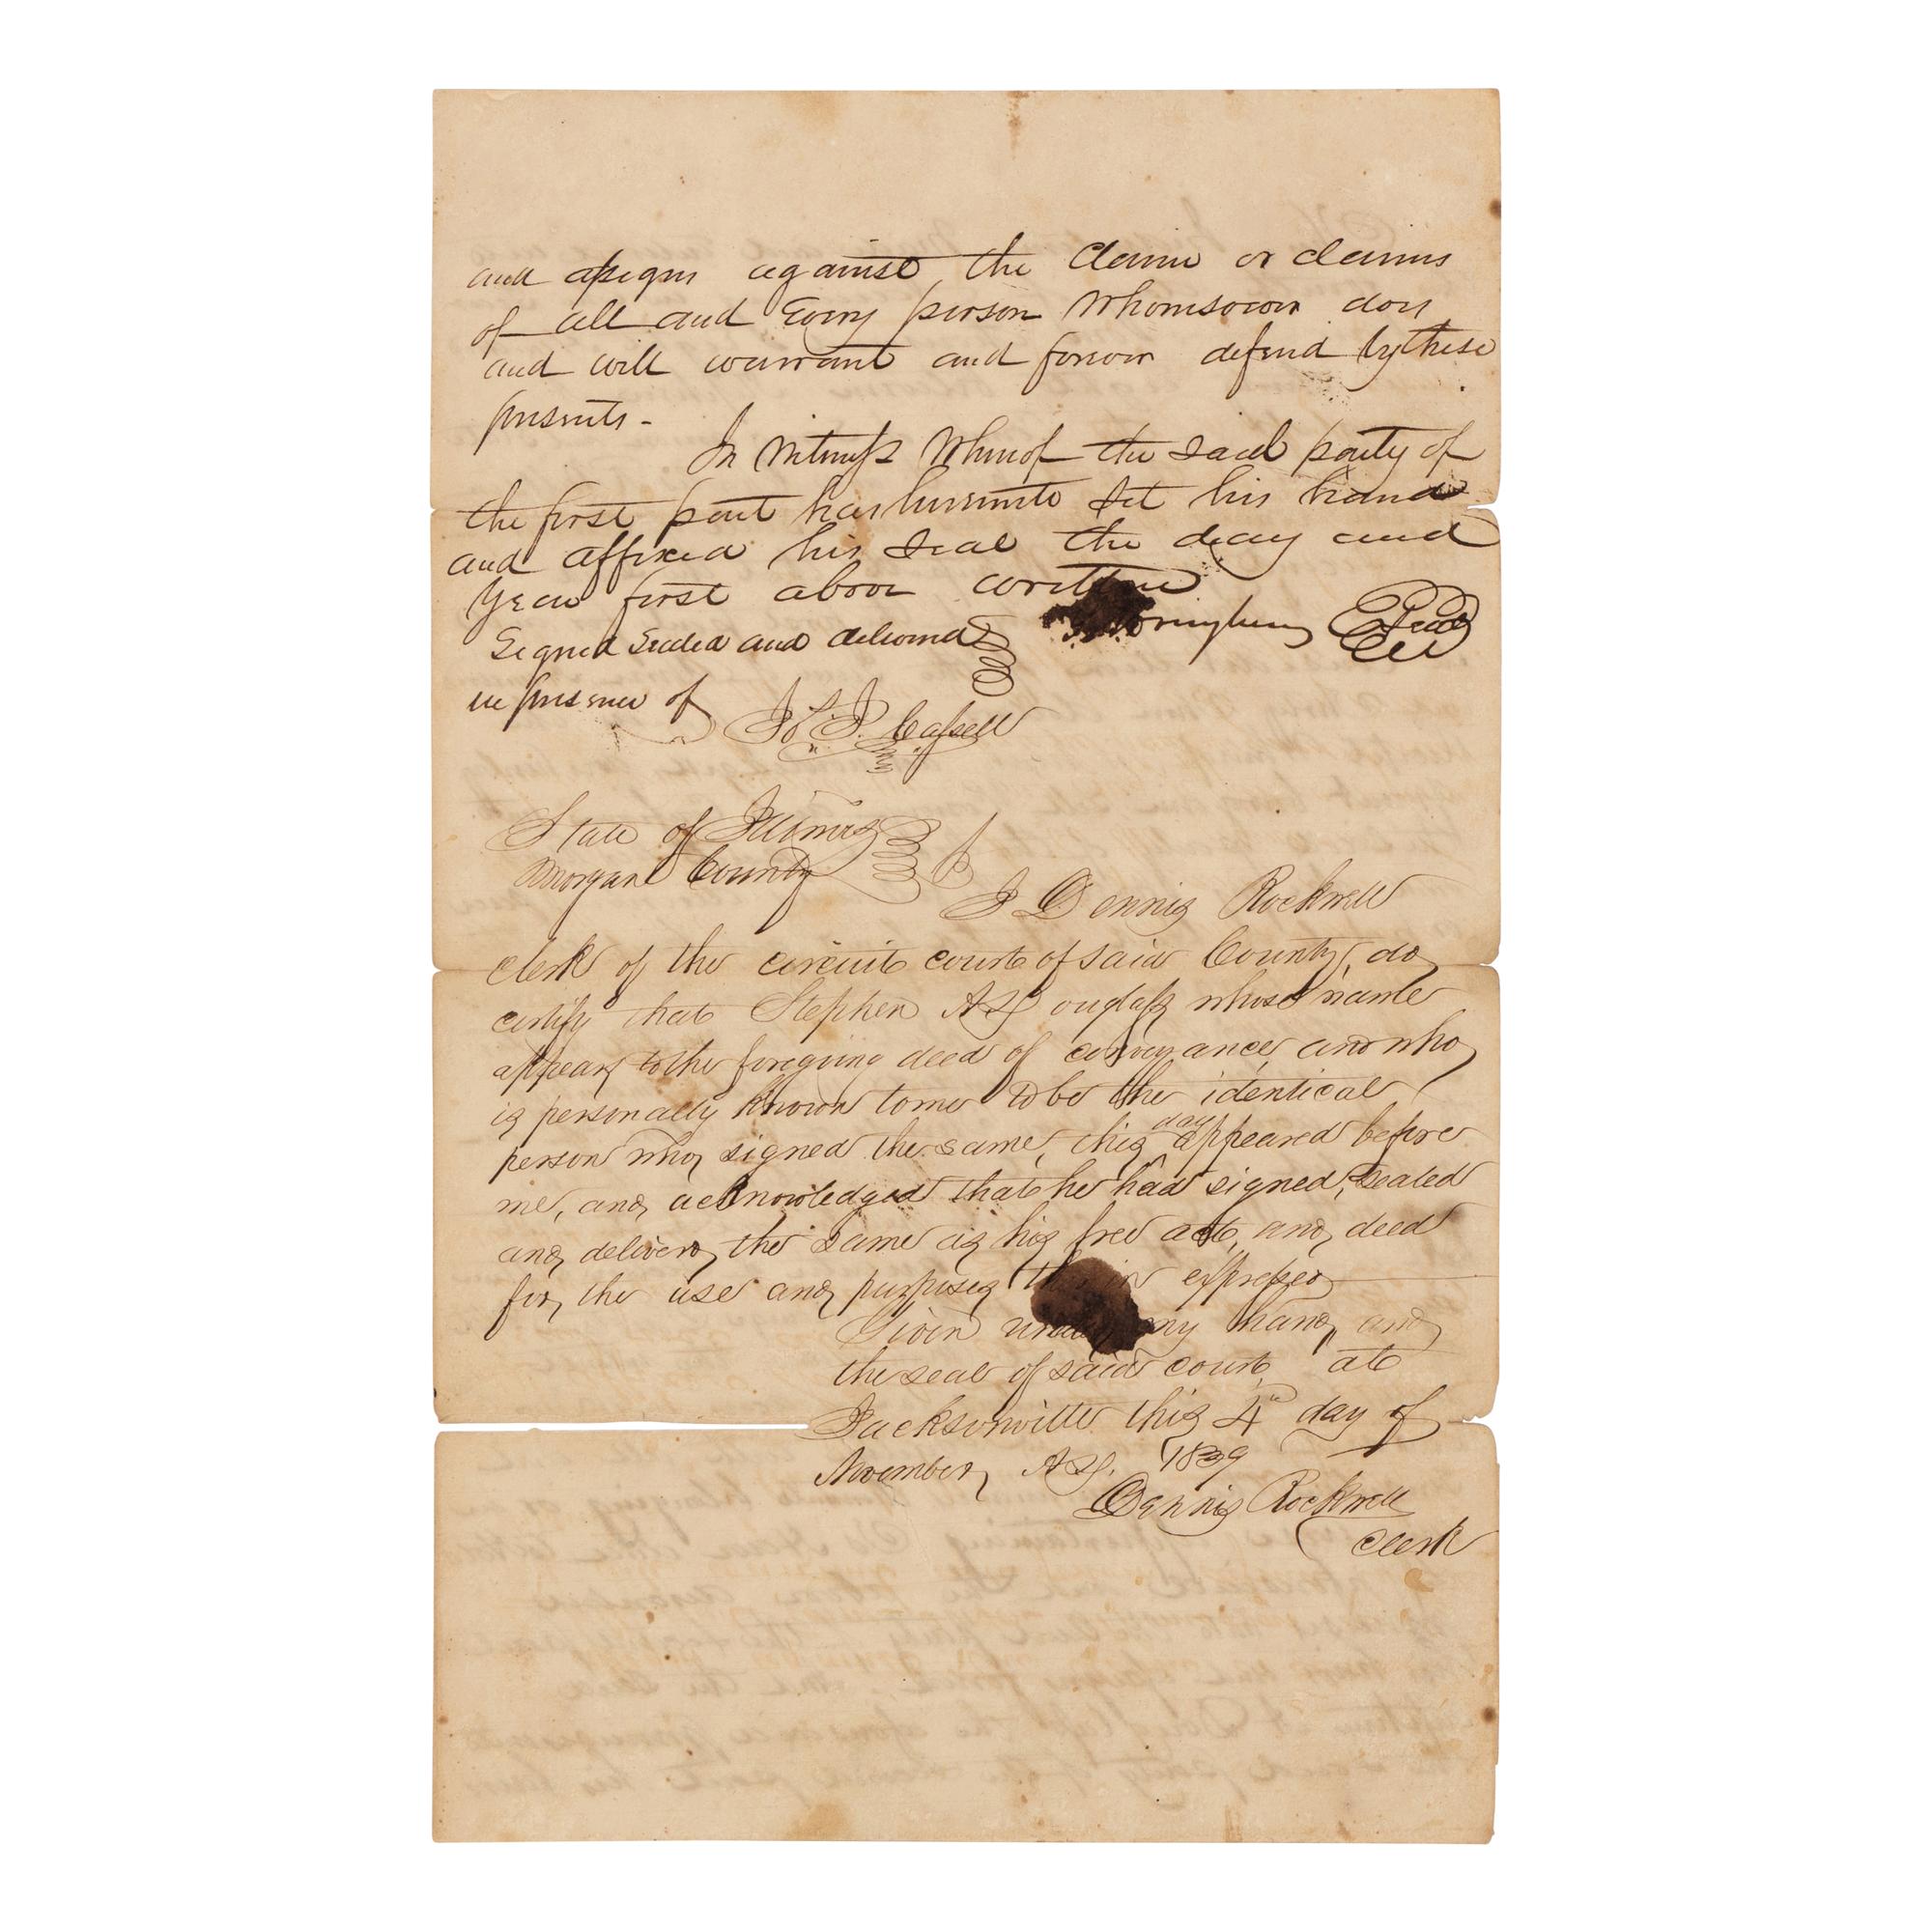 and assigns against the claim or claims
of all and Every person Whomsoever does
and will warrant and forever defend by these
presents-
In Witness Whereof the said party of
the first part has hereunto Set his hand
and affixed his Seal the day and
Year first above written
Signed Sealed and delivered
in presence of
J. Cassell
State of Illinois
Morgan County
I Dennis Rockwell
clerk of the circuit court of said County, do
certify that Stephen A D ouglass whose name
appears to the foregoing deed of conveyance, and who
is personally known to me to be the identical
person who signed the same, this day appeared before
me, and acknowledged that he had signed, sealed
and delivered the same as his free act, and deed
for the use and purposes therein expressed
Given under my hand, and
the seal of said court, at
Jacksonville this 4th day of
November A D. 1839
Dennis Rockwell
Clerk